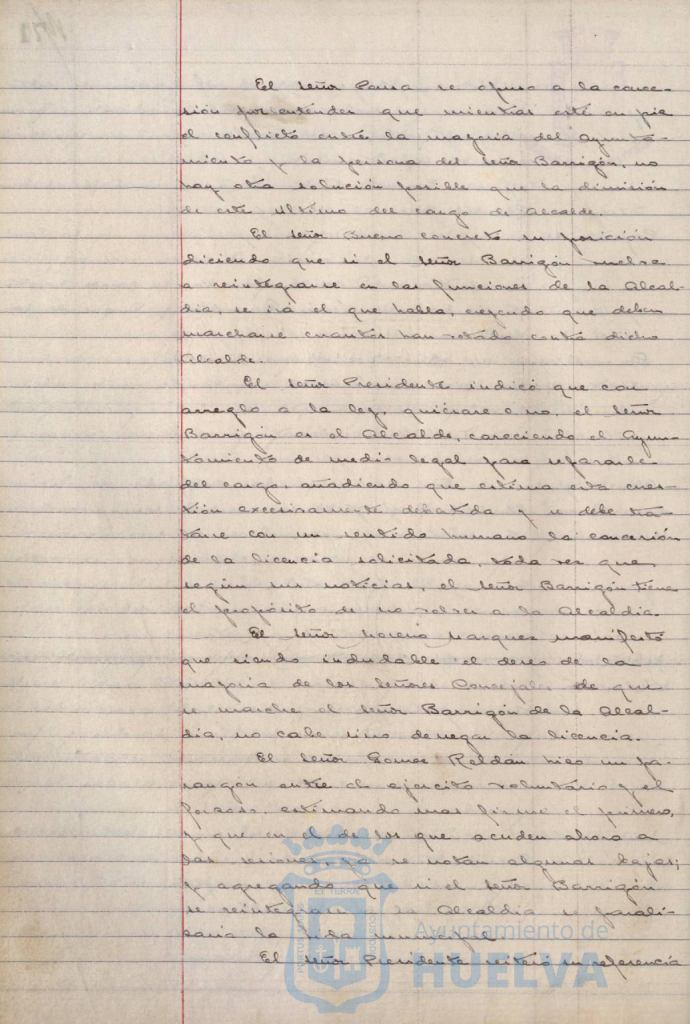 El señor Parra se opuso a la conce-
sión por entender que mientras esté en pie
el conflicto entre la mayoria del Ayunta-
miento y la persona del señor Barrigón, no
hay otra solución posible que la dimisión
de este último del cargo de Alcalde.
El señor Bueno concretó su posición
diciendo que si el señor Barrigón vuelve
a reintegrarse en las funciones de la Alcal-
dia, se irá el que habla, creyendo que deben
marcharse cuantos han votado contra dicho
Alcalde.
El señor Presidente indicó que con
arreglo a la ley, quiérase o no, el señor
Barrigón es el Alcalde, careciendo el Ayun-
tamiento de medio legal para separarle
del cargo, añadiendo que estima esta cues-
tión excesivamente debatida y se debe tra-
tarse con un sentido humano la concesión
de la licencia solicitada, toda vez que
según sus noticias, el señor Barrigón tiene
el propósito de no volver a la Alcaldia.
El señor Moreno Marquez manifestó
que siendo indudable el deseo de la
mayoria de los señores Concejales de que
se marche el señor Barrigón de la Alcal-
dia, no cabe sino denegar la licencia.
El señor Gomez Roldán hizo un pa-
rangón entre el ejercito voluntario y el
forzoso, estimando mas firme el primero,
y que en el de los que acuden ahora a
las sesiones, ya se notan algunas bajas;
y agregando que si el señor Barrigón
se reintegrase a la Alcaldia se parali-
zaria la vida municipal.
El señor Presidente reiteró su referencia
Ayuntamiento de
HUELVA